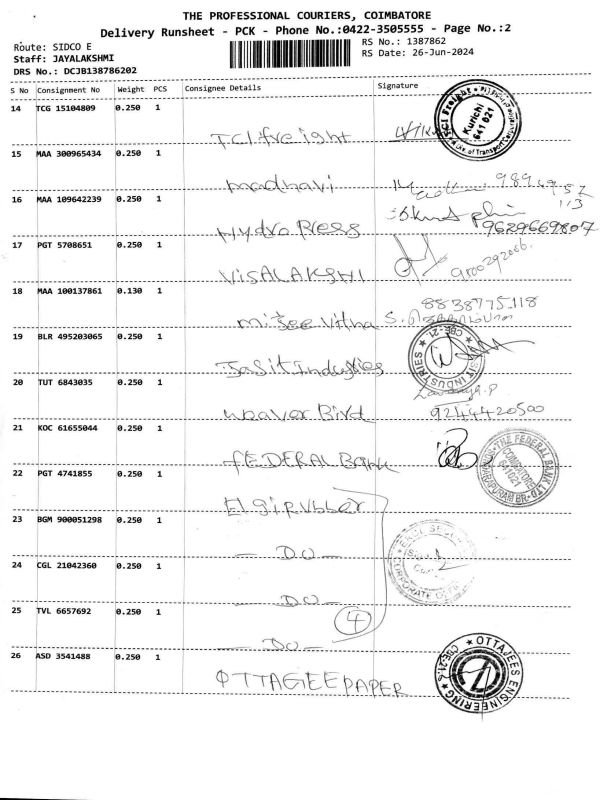 THE PROFESSIONAL COURIERS, COIMBATORE
Delivery Runsheet - PCK - Phone No.:0422-3505555 - Page No.:2
Route: SIDCO E
Staff: JAYALAKSHMI
DRS No.: DCJB138786202
RS No.: 1387862
RS Date: 26-Jun-2024
S No Consignment No Weight PCS Consignee Details Signature
14 TCG 15104809 0.250 1
TCI freight
TCI Freight
Kurichi
641 021
15 MAA 300965434 0.250 1
madhavi
16 MAA 109642239 0.250 1
Hydro Press
9629669807
17 PGT 5708651 0.250 1
VISALAKSHI
9100292006.
18 MAA 100137861 0.130 1
8838775118
19 BLR 495203065 0.250 1
Jasit Industries
CBE-21
INDUSTRIES
20 TUT 6843035 0.250 1
Weaver Bird
9244420500
21 KOC 61655044 0.250 1
FEDERAL BANK
THE FEDERAL BANK LTD
COIMBATORE
641021
22 PGT 4741855 0.250 1
Elgi rubber
23 BGM 900051298 0.250 1
— DO —
CORPORATE
24 CGL 21042360 0.250 1
— DO —
4
25 TVL 6657692 0.250 1
— DO —
26 ASD 3541488 0.250 1
OTTAGEE PAPER
OTTAJEES ENGINEERING
CBE-21